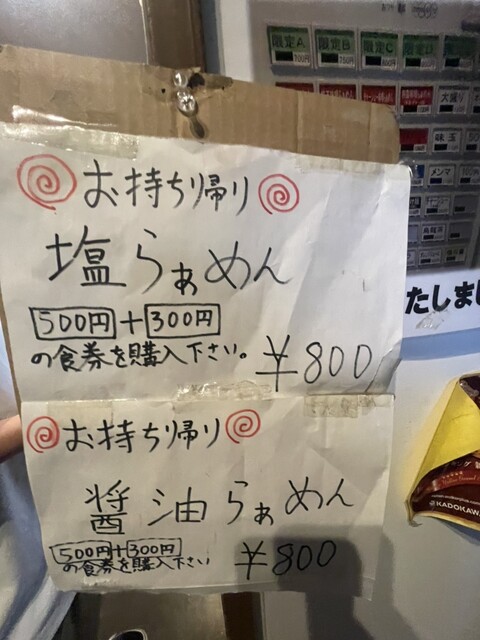 限定A
限定B
限定C
限定D
大盛り
味玉
メンマ
お持ち帰り
塩らぁめん
500円+300円
の食券を購入下さい。
¥800
たしまし
お持ち帰り
醤油らぁめん
500円+300円
の食券を購入下さい
¥800
KADOKAWA